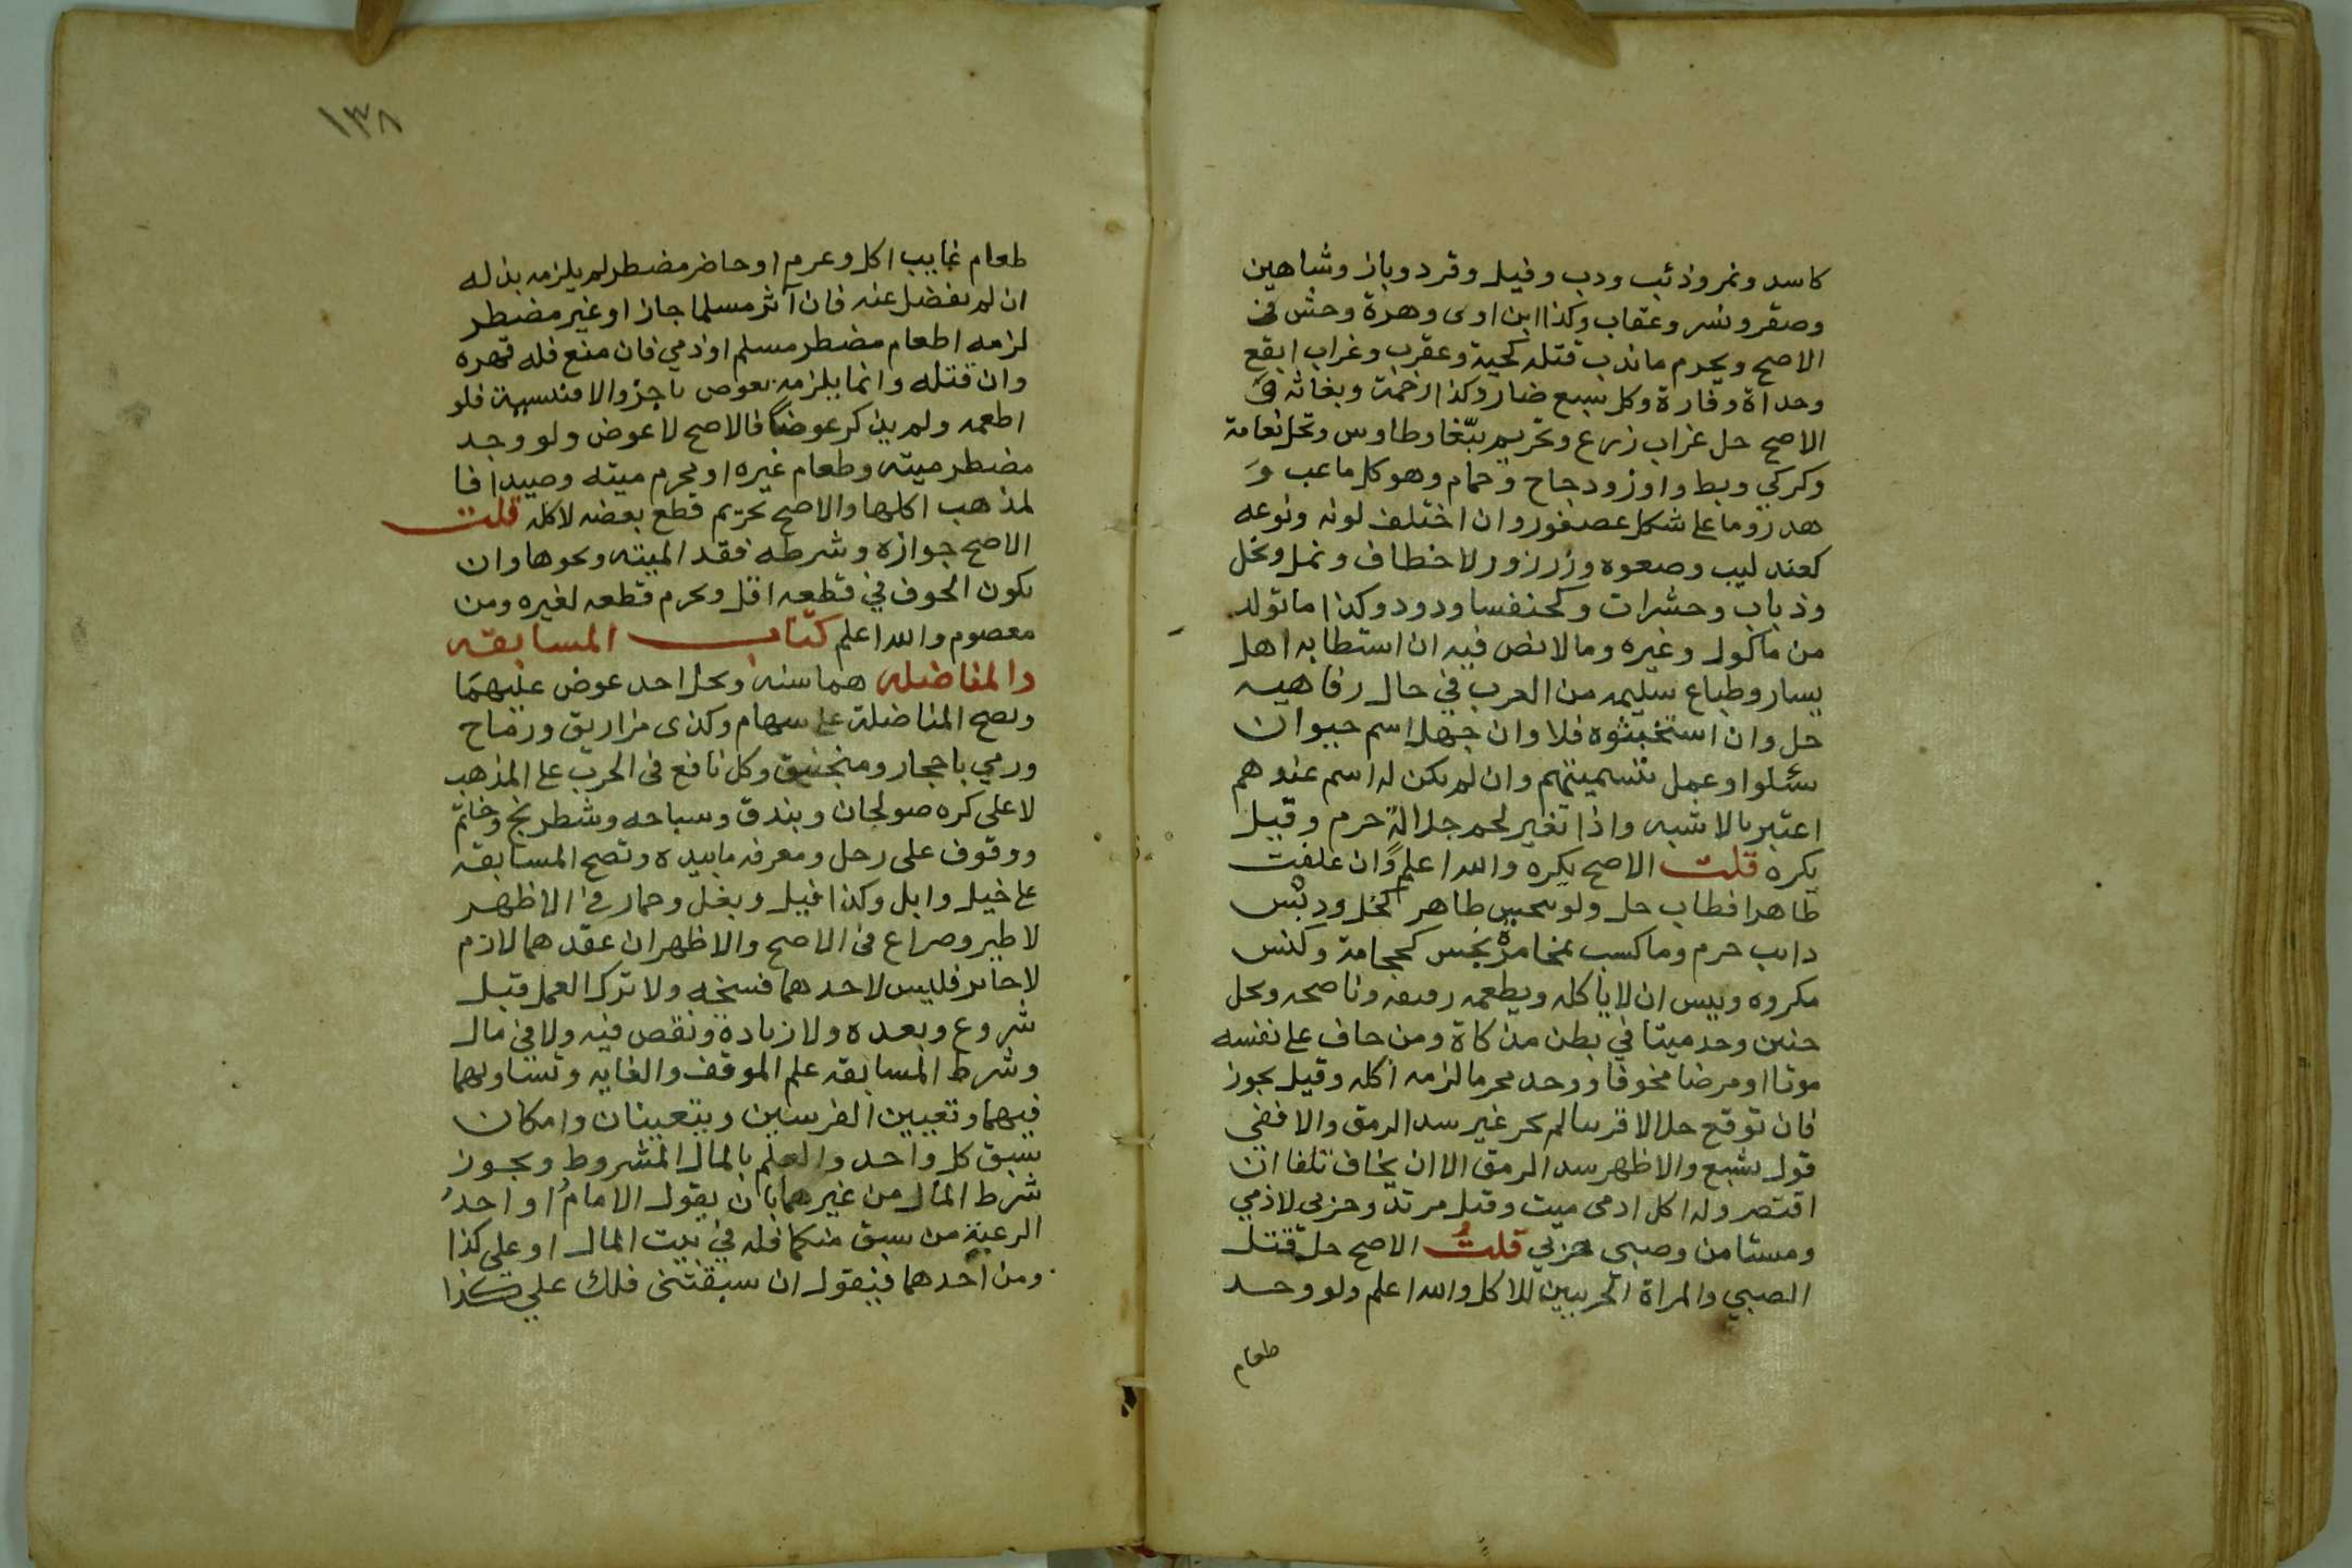 كاسد ونمر وذئب ودب وفيل وقرد وباز وشاهين
وصقر ونسر وعقاب وكذا ابن اوى وهرة وحش فى
الاصح ويحرم ما ندب قتله كحية وعقرب وغراب ابقع
وحداة وفارة وكل سبع ضار وكذا رخمة وبغاثه فى
الاصح حل غراب زرع وتحريم ببغا وطاوس وتحل نعامة
وكركي وبط واوز ودجاج وحمام وهو كل ما عب و
هدر وما على شكل عصفور وان اختلف لونه ونوعه
كعندليب وصعوه وزرزور لا خطاف ونمل ونحل
وذباب وحشرات وكخنفسا ودود وكذا ما تولد
من ماكول وغيره وما لا نص فيه ان استطابه اهل
يسار وطباع سليمه من العرب في حال رفاهيه
حل وان استخبثوه فلا وان جهل اسم حيوان
سئلوا وعمل بتسميتهم وان لم يكن له اسم عندهم
اعتبر بالاشبه واذا تغير لحم جلالة حرم وقيل
يكره قلت الاصح يكره والله اعلم وان علفت
طاهرا فطاب حل ولو نجس طاهر كخل ودبس
دايب حرم وما كسب بمخامرة نجس كحجامة وكنس
مكروه ويسن ان لا ياكله ويطعمه رقيقه وناضحه ويحل
جنين وجد ميتا في بطن مذكاة ومن خاف على نفسه
موتا او مرضا مخوفا ووجد محرما لزمه اكله وقيل يجوز
فان توقع حلالا قريبا لم يجز غير سد الرمق والا ففي
قول يشبع والاظهر سد الرمق الا ان يخاف تلفا ان
اقتصر وله اكل ادمى ميت وقتل مرتد وحربى لا ذمي
ومستامن وصبى حربي قلتُ الاصح حل قتل
الصبي والمراة الحربيين للاكل والله اعلم ولو وجد
طعام
١٣٨
طعام غايب اكل وغرم او حاضر مضطر لم يلزمه بذله
ان لم يفضل عنه فان آثر مسلما جاز او غير مضطر
لزمه اطعام مضطر مسلم او ذمي فان منع فله قهره
وان قتله وانما يلزمه بعوض ناجز والا فنسيية فلو
اطعمه ولم يذكر عوضا فالاصح لا عوض ولو وجد
مضطر ميته وطعام غيره او محرم ميته وصيدا فا
لمذهب اكلها والاصح تحريم قطع بعضه لاكله قلت
الاصح جوازه وشرطه فقد الميته ونحوها وان
يكون الخوف في قطعه اقل ويحرم قطعه لغيره ومن
معصوم والله اعلم كتاب المسابقه
والمناضله هما سنه ويحل اخد عوض عليهما
وتصح المناضلة على سهام وكذى مزاريق ورماح
ورمي باحجار ومنجنيق وكل نافع فى الحرب على المذهب
لا على كره صولجان وبندق وسباحه وشطرنج وخاتم
ووقوف على رجل ومعرفه ما بيده وتصح المسابقه
على خيل وابل وكذا فيل وبغل وحمار في الاظهر
لا طير وصراع فى الاصح والاظهر ان عقدهما لازم
لا جايز فليس لاحدهما فسخه ولا ترك العمل قبل
شروع وبعده ولا زيادة ونقص فيه ولا في مال
وشرط المسابقه علم الموقف والغايه وتساويهما
فيهما وتعيين الفرسين ويتعينان وامكان
سبق كل واحد والعلم بالمال المشروط ويجوز
شرط المال من غيرهما بان يقول الامامُ او احدُ
الرعية من سبق منكما فله في بيت المال او على كذا
ومن احدهما فيقول ان سبقتنى فلك علي كذا